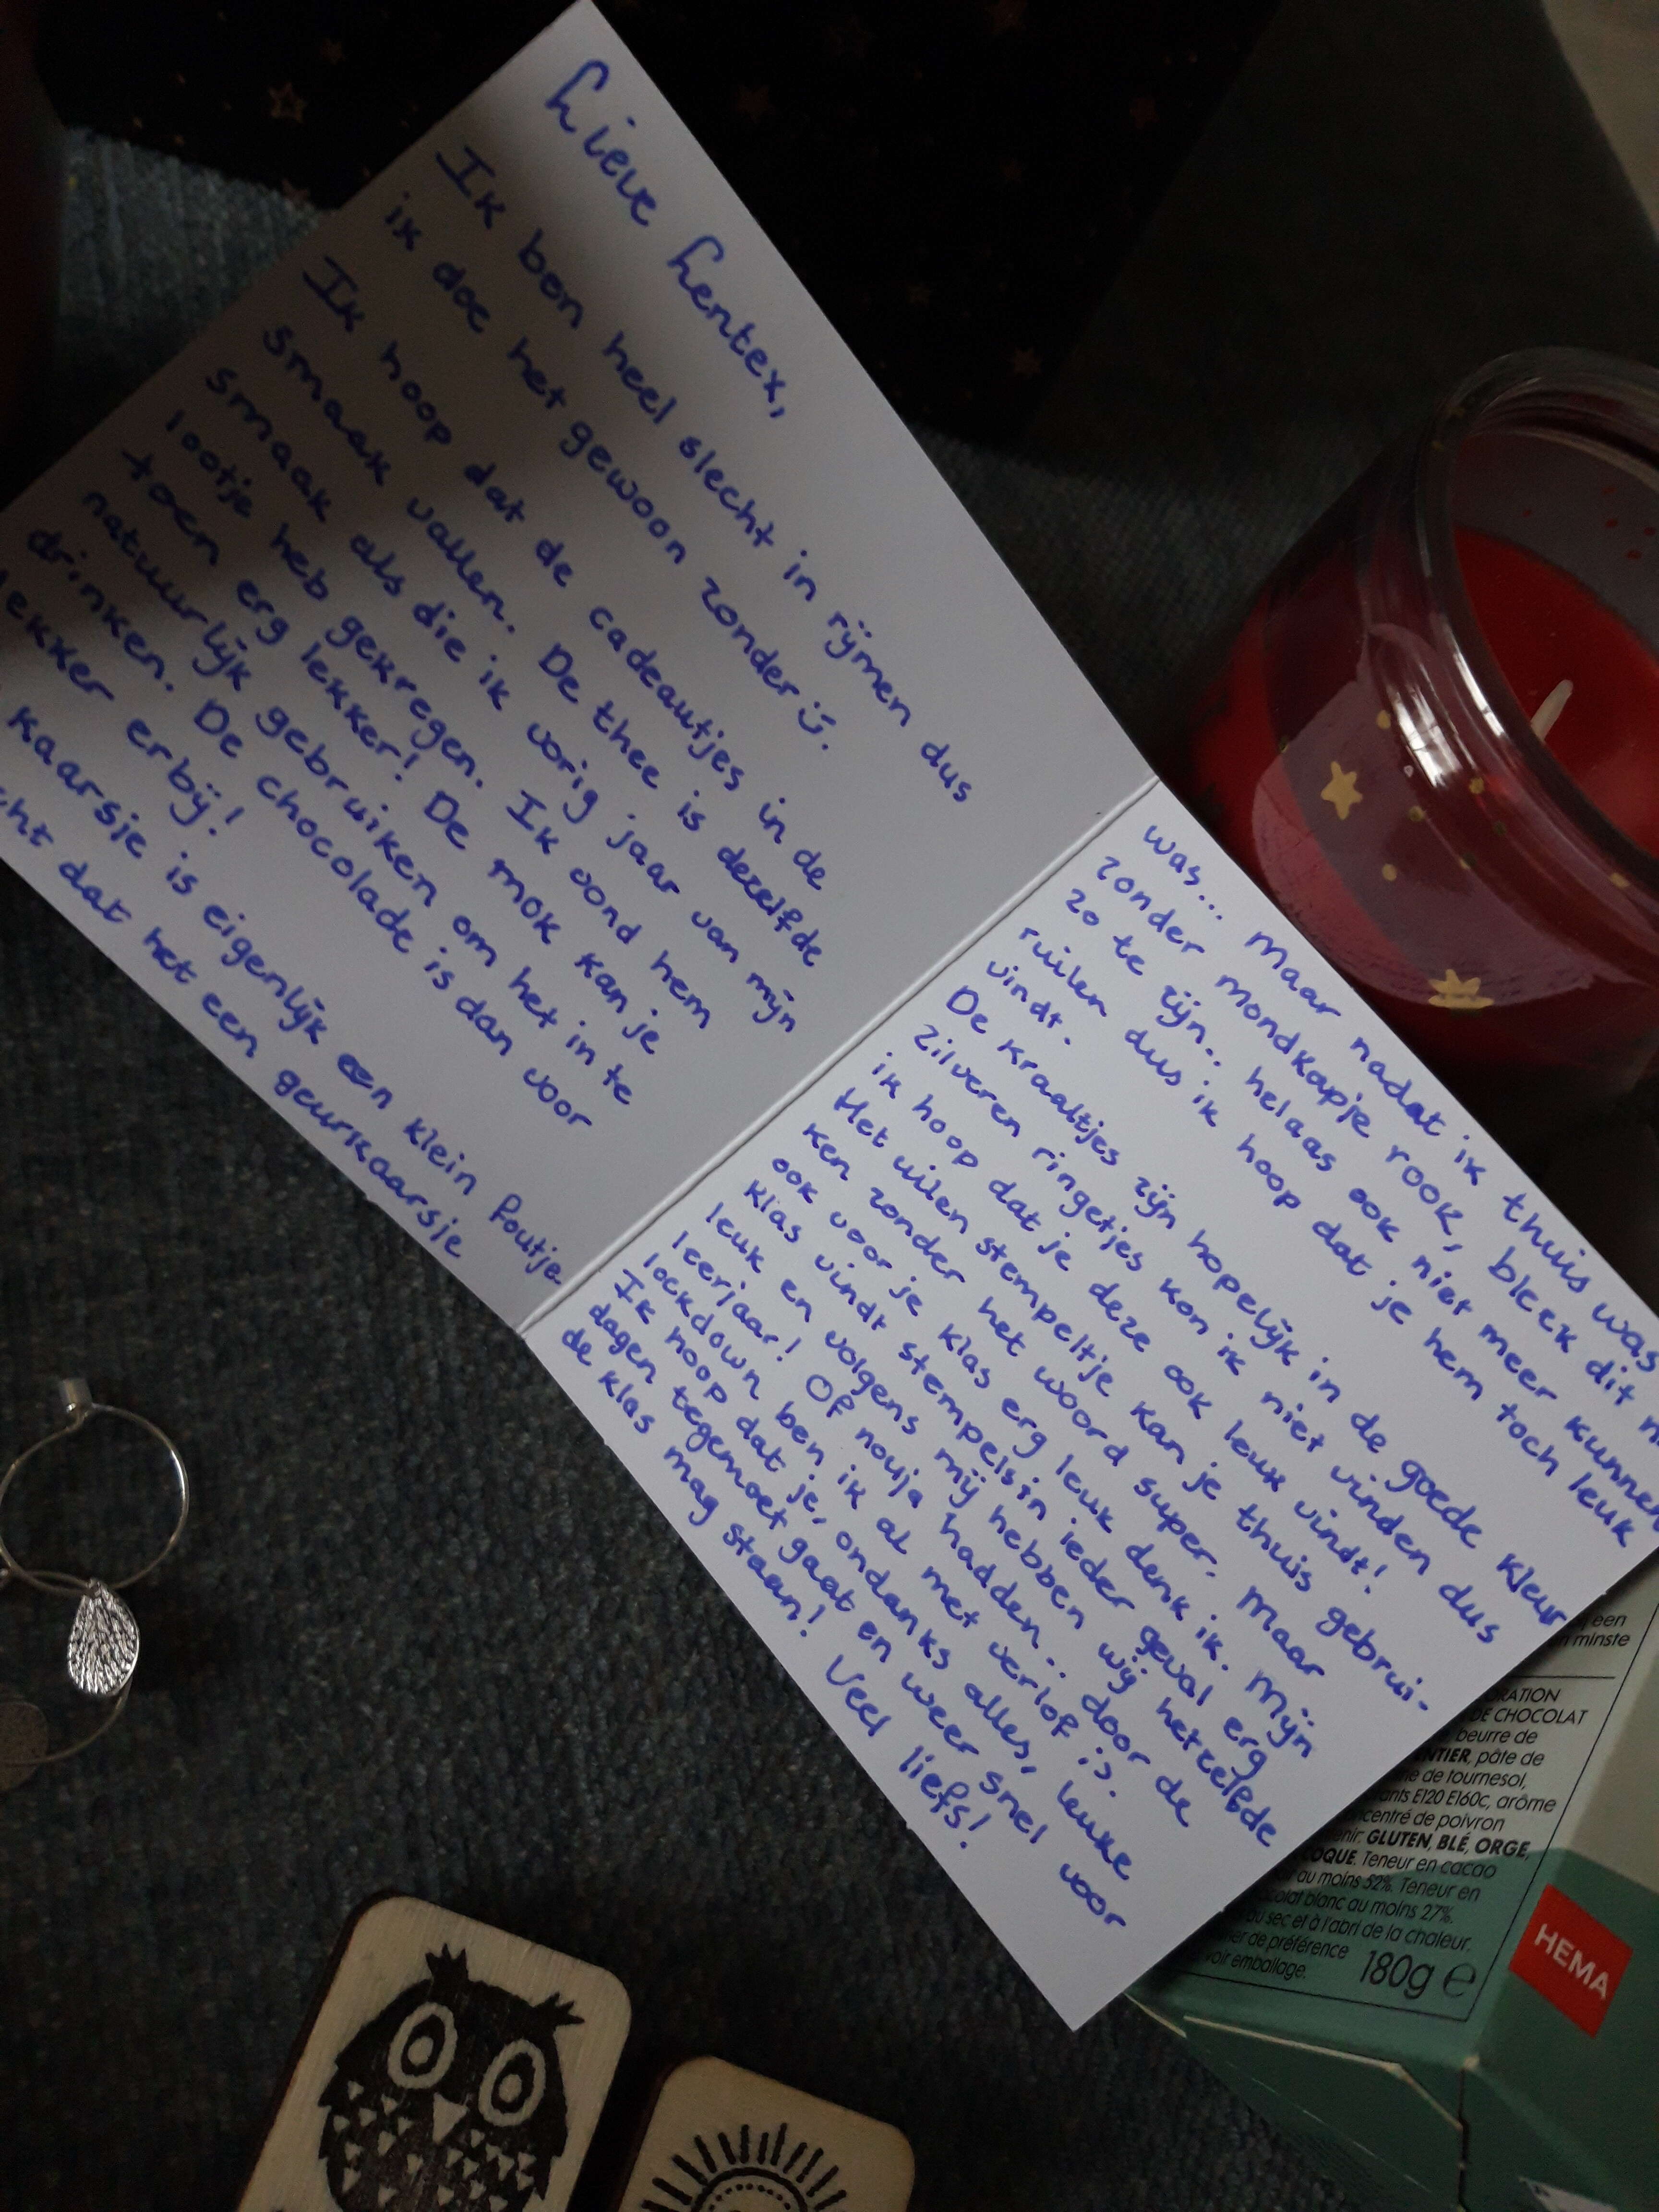 Lieve Lentex,
Ik ben heel slecht in rijmen dus
ik doe het gewoon zonder :).
Ik hoop dat de cadeautjes in de
smaak vallen. De thee is dezelfde
smaak als die ik vorig jaar van mijn
lootje heb gekregen. Ik vond hem
toen erg lekker! De mok kan je
natuurlijk gebruiken om het in te
drinken. De chocolade is dan voor
lekker erbij!
kaarsje is eigenlijk een klein foutje
dat het een geurkaarsje
was... Maar nadat ik thuis was
zonder mondkapje rook, bleek dit
zo te zijn.. helaas ook niet meer kunnen
ruilen dus ik hoop dat je hem toch leuk
vindt.
De kraaltjes zijn hopelijk in de goede kleur
zilveren ringetjes kon ik niet vinden dus
ik hoop dat je deze ook leuk vindt!
Het uilen stempeltje kan je thuis gebrui-
ken zonder het woord super. Maar
ook voor je klas erg leuk denk ik. Mijn
klas vindt stempels in ieder geval erg
leuk en volgens mij hebben wij hetzelfde
leerjaar! Of nouja hadden.. door de
lockdown ben ik al met verlof :).
Ik hoop dat je, ondanks alles, leuke
dagen tegemoet gaat en weer snel voor
de klas mag staan! Veel liefs!
een
minste
DE CHOCOLAT
beurre de
pâte de
de tournesol,
E120 E160c, arôme
de poivron
GLUTEN, BLÉ, ORGE,
Teneur en cacao
au moins 52%. Teneur en
blanc au moins 27%.
au sec et à l'abri de la chaleur.
de préférence
voir emballage.
180g e
HEMA